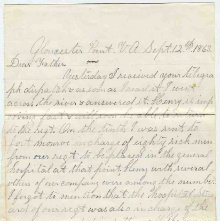 Gloucester Point VA Sept. 12th 1863
Dear Father
Yesterday I received your telegra
ph dispatch as soon as I read it I went
across the river & answered it. Henry is
to the regt. On the I was sent to
fort monroe in charge of eighty sick men
from our regt to be placed in the general
hospital at that point, Henry with several
others of our company were among the number
I forgot to mention that the Hospital Stew
ard of our regt was also in charge of the